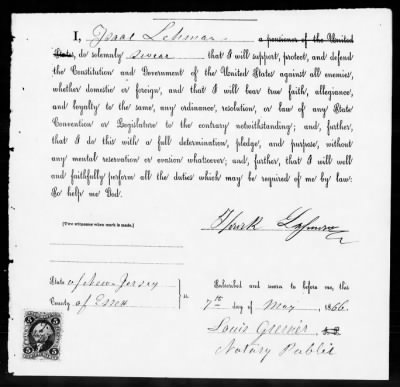 I, Isaac Lehman a pensioner of the United
States, do solemnly swear that I will support, protect, and defend
the Constitution and Government of the United States against all enemies,
whether domestic or foreign, and that I will bear true faith, allegiance,
and loyalty to the same, any ordinance, resolution, or law of any State
Convention or Legislature to the contrary notwithstanding; and, further,
that I do this with a full determination, pledge, and purpose, without
any mental reservation or evasion whatsoever; and, further, that I will well
and faithfully perform all the duties which may be required of me by law:
So help me God.
[Two witnesses when mark is made.]
State of New Jersey
County of Essex
} ss
Subscribed and sworn to before me, this
7th day of May, 1866.
Louis Greiner
Notary Public